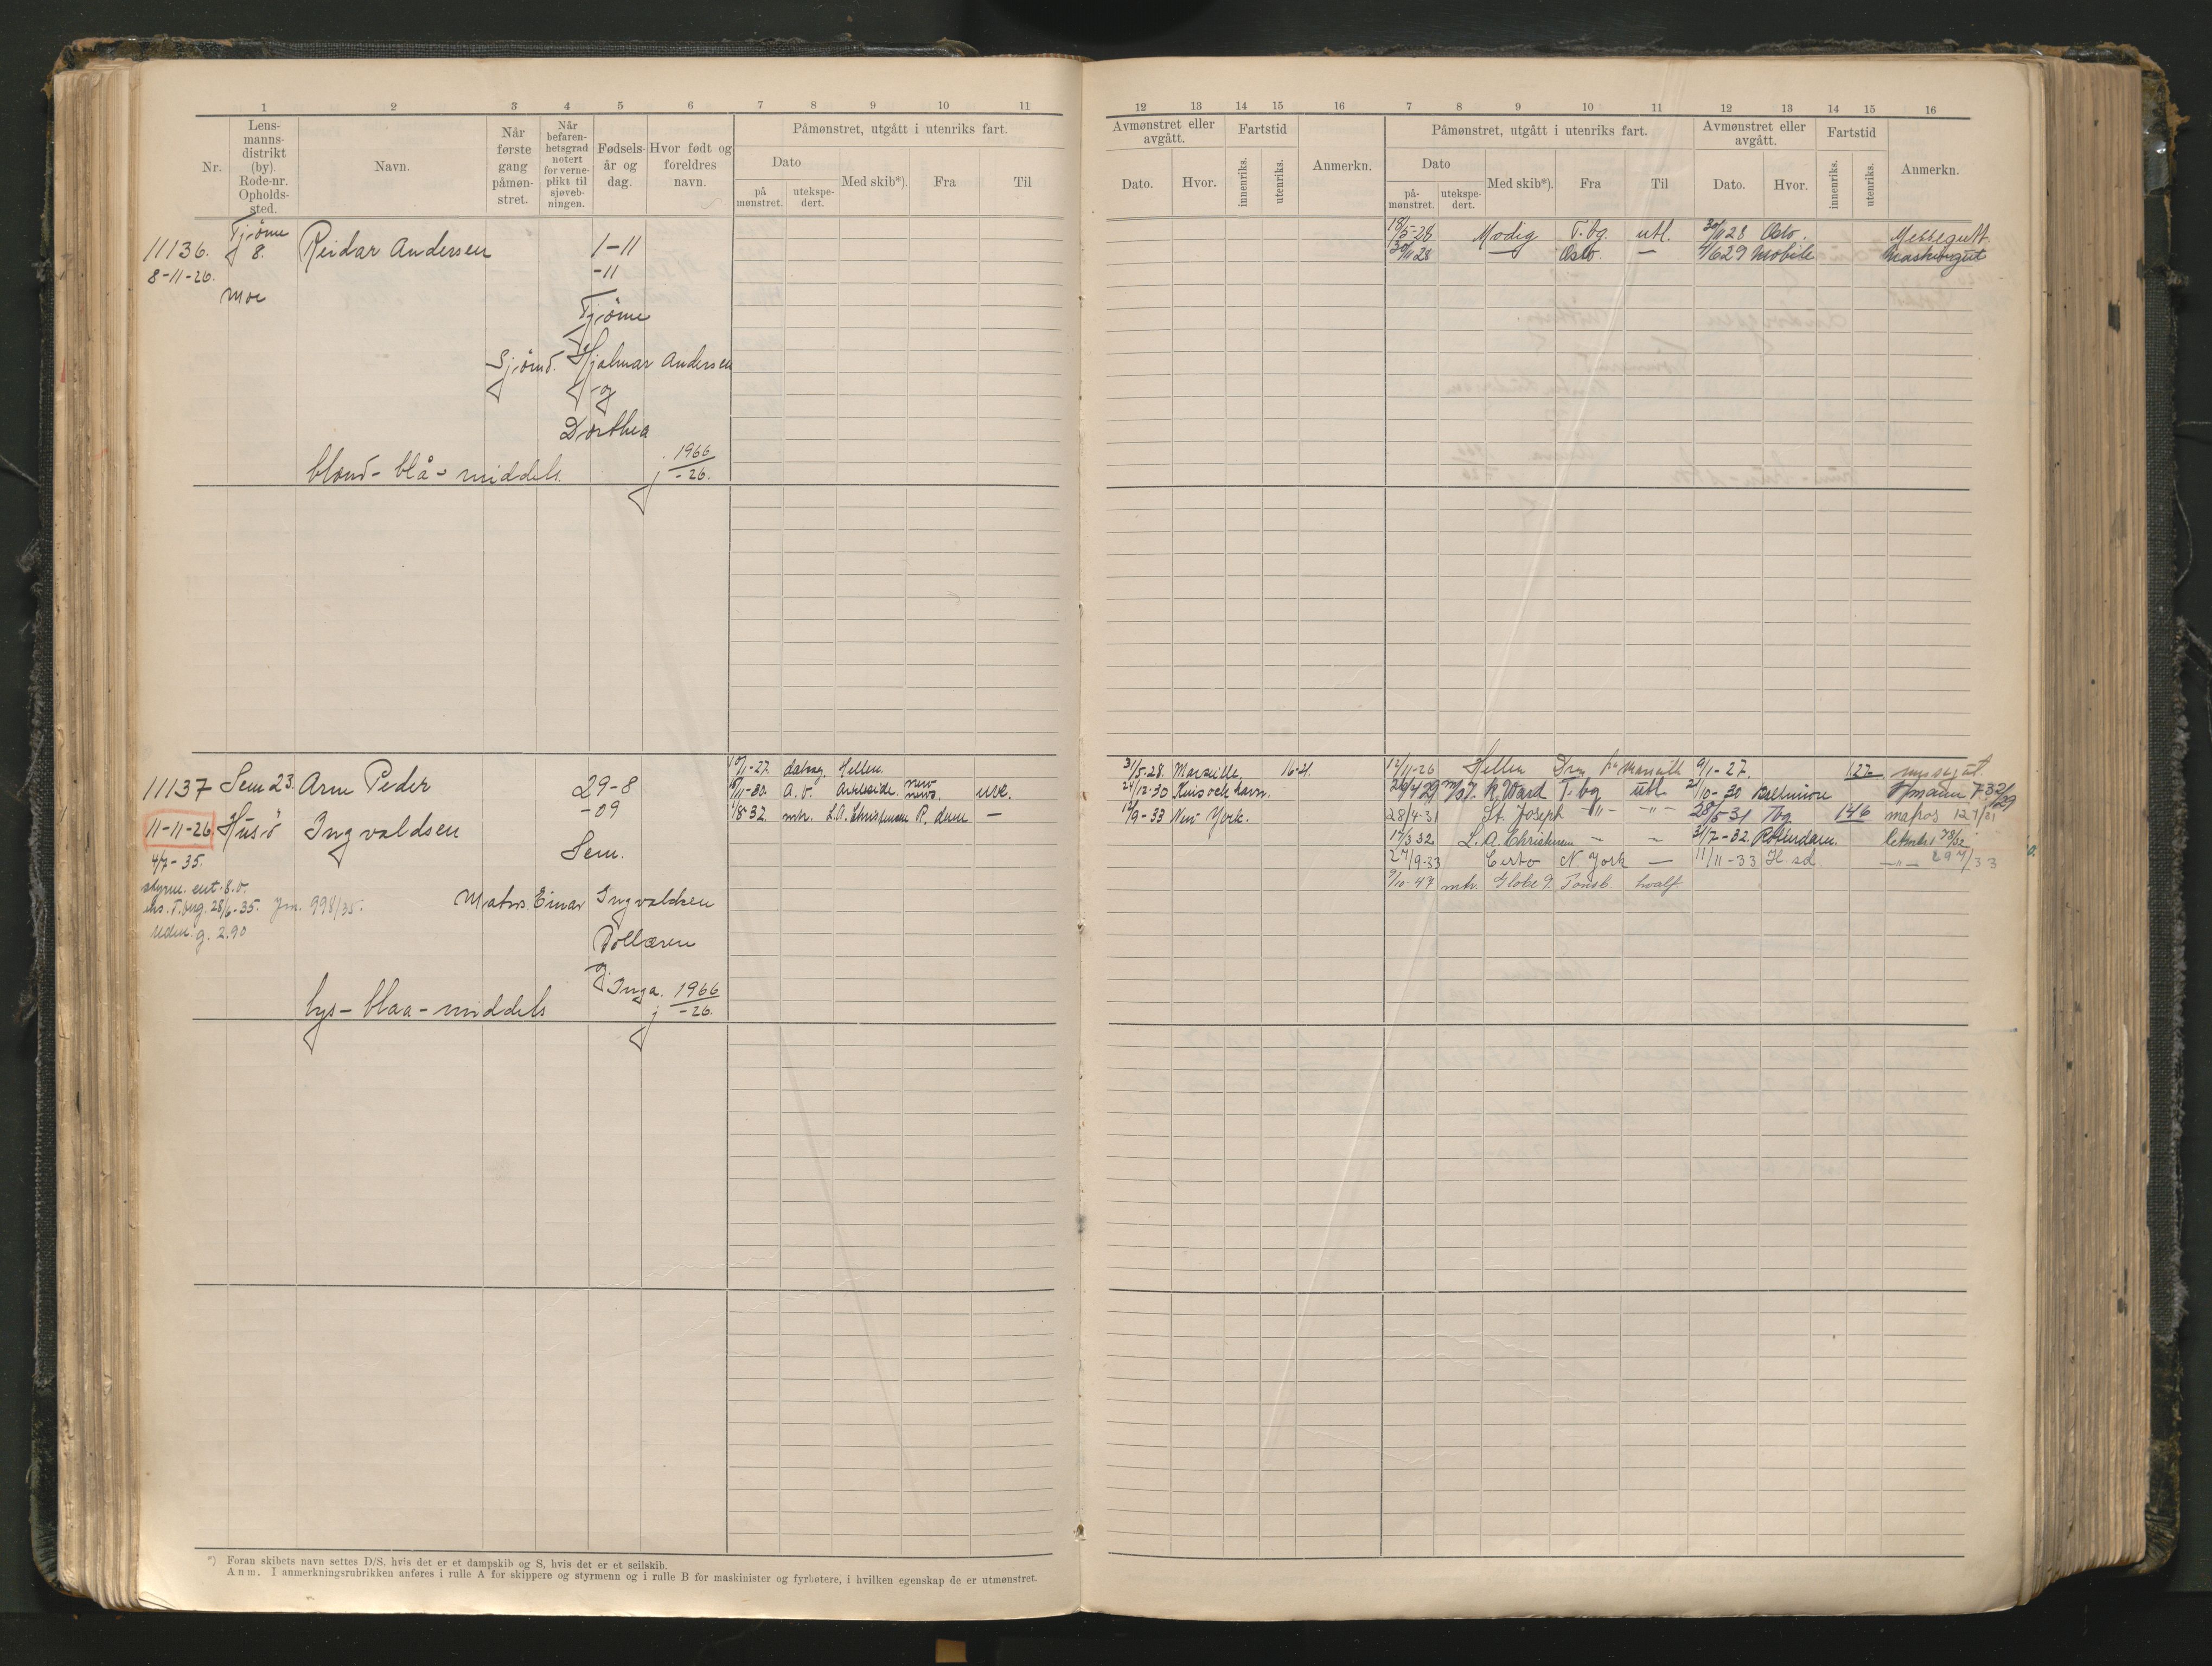 1 2 3 4 5 6 7 8 9 10 11
Nr. Lens-manns-distrikt (by). Rode-nr. Opholds-sted. Navn. Når første gang påmøn-stret. Når befaren-hetsgrad notert for verne-plikt til sjøveb-ningen. Fødsels-år og dag. Hvor født og foreldres navn. Påmønstret, utgått i utenriks fart.
Dato Med skib*). Fra Til
på mønstret. utekspe-dert.
11136. Tjøme 8. Reidar Andersen 1-11
8-11-26. -11
Moe
Tjøme
Sjømd. Hjalmar Andersen
og
Dorthea
blond - blå - middels. j. 1966/-26.
11137 Sem 23. Arne Peder 29-8
11-11-26 Husø Ingvaldsen -09
4/7-35. Sem.
styrm. eut. 8. v.
T.berg. 28/6-35. Jrn. 998/35. Matros. Einar Ingvaldsen
g. 2.90 Vollæren
og Inga.
lys - blaa - middels j 1966/-26.
10/1-27. Hellen.
11-30. New News.
1/8-32 mtr. L.A. Christensen R.dam -
*) Foran skibets navn settes D/S, hvis det er et dampskib og S, hvis det er et seilskib.
Anm. I anmerkningsrubrikken anføres i rulle A for skippere og styrmenn og i rulle B for maskinister og fyrbøtere, i hvilken egenskap de er utmønstret.
12 13 14 15 16 7 8 9 10 11 12 13 14 15 16
Avmønstret eller avgått. Fartstid Anmerkn. Påmønstret, utgått i utenriks fart. Avmønstret eller avgått. Fartstid Anmerkn.
Dato. Hvor. innenriks. utenriks. Dato Med skib*). Fra Til Dato. Hvor. innenriks. utenriks.
på-mønstret. utekspe-dert.
18/5-28 Modig T.bg. utl. 30/11 28 Oslo. Messegutt.
30/11 28 — Oslo. — 4/6 29 Mobile Maskingut
31/5-28. Marseille. 16-21. 12/11-26 Hellen Drm 9/1-27. 127
24/12-30 26/4 29 R. Ward T.bg utl 21/10-30 Baltimore
12/9-33 New York. 28/4-31 St. Joseph -"- -"- 28/5-31 Tbg 146 matros
14/3 32 L.A. Christensen - - 31/7-32. Rotterdam.
27/9-33 Certo N York — 11/11-33 H. sd -"-
9/10-47 mtr. Globe 9. Tønsb. hvalf.